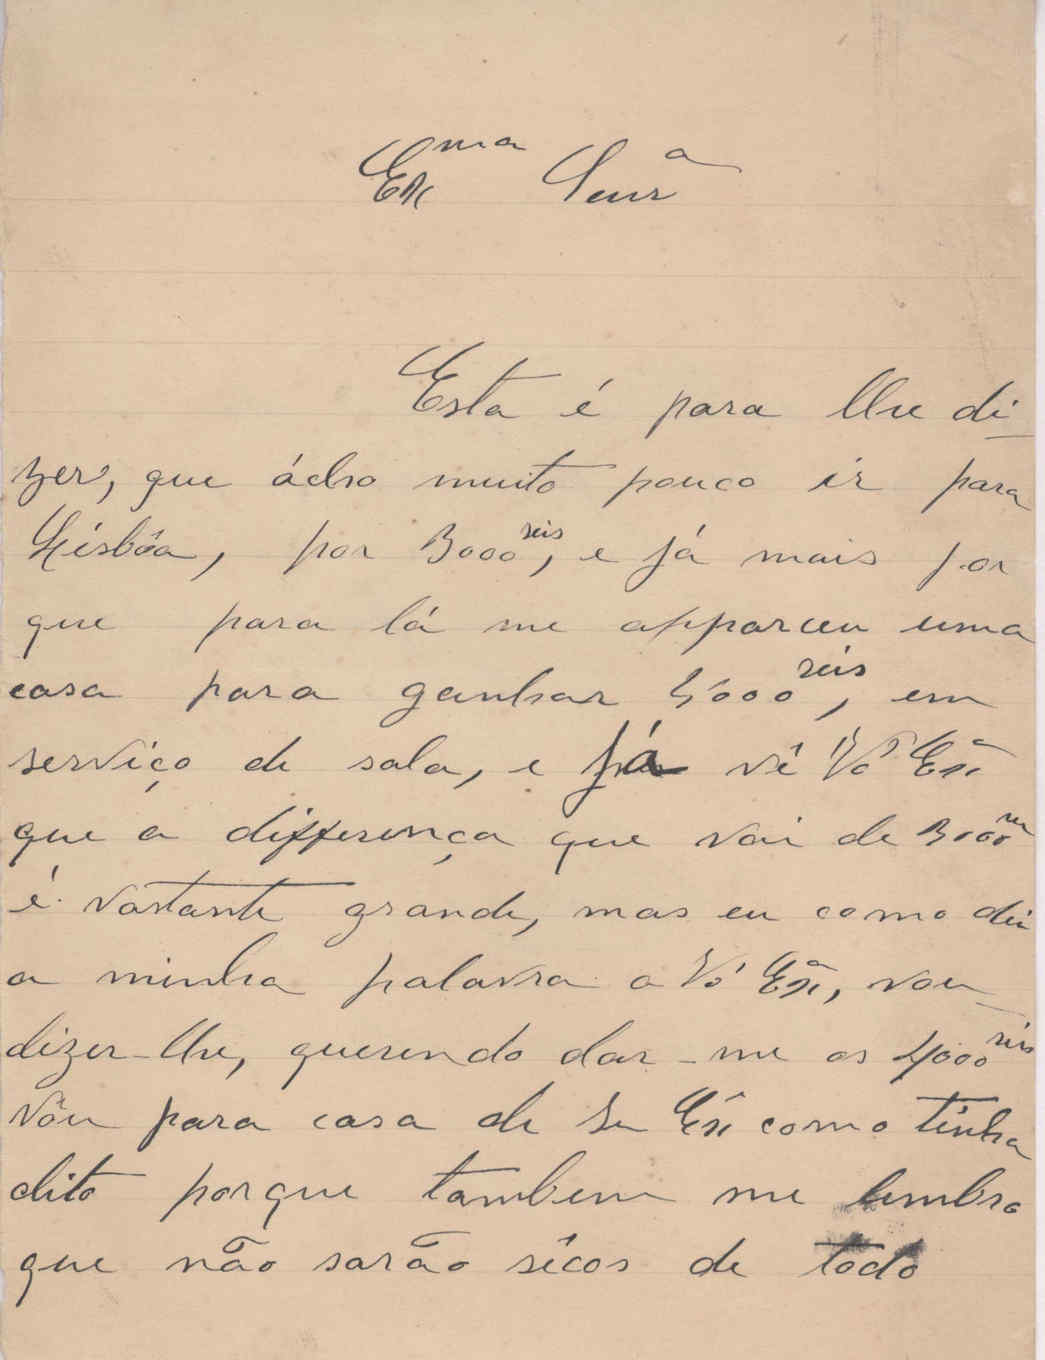 Exma Senra
Esta é para lhe di-
zer, que ácho muito pouco ir para
Lisbôa, por 3000 reis, e já mais por
que para lá me appareceu uma
casa para ganhar 5000 reis, em
serviço de sala, e já vê Vó Exa
que a differença que vai de 3000 reis
é vastante grande, mas eu como dei
a minha palavra a Vó Exa, vou
dizer-lhe, querendo dar-me os 4000 reis
vôu para casa de Su Exa como tinha
dito porque tambem me lembro
que não sarão sêcos de todo